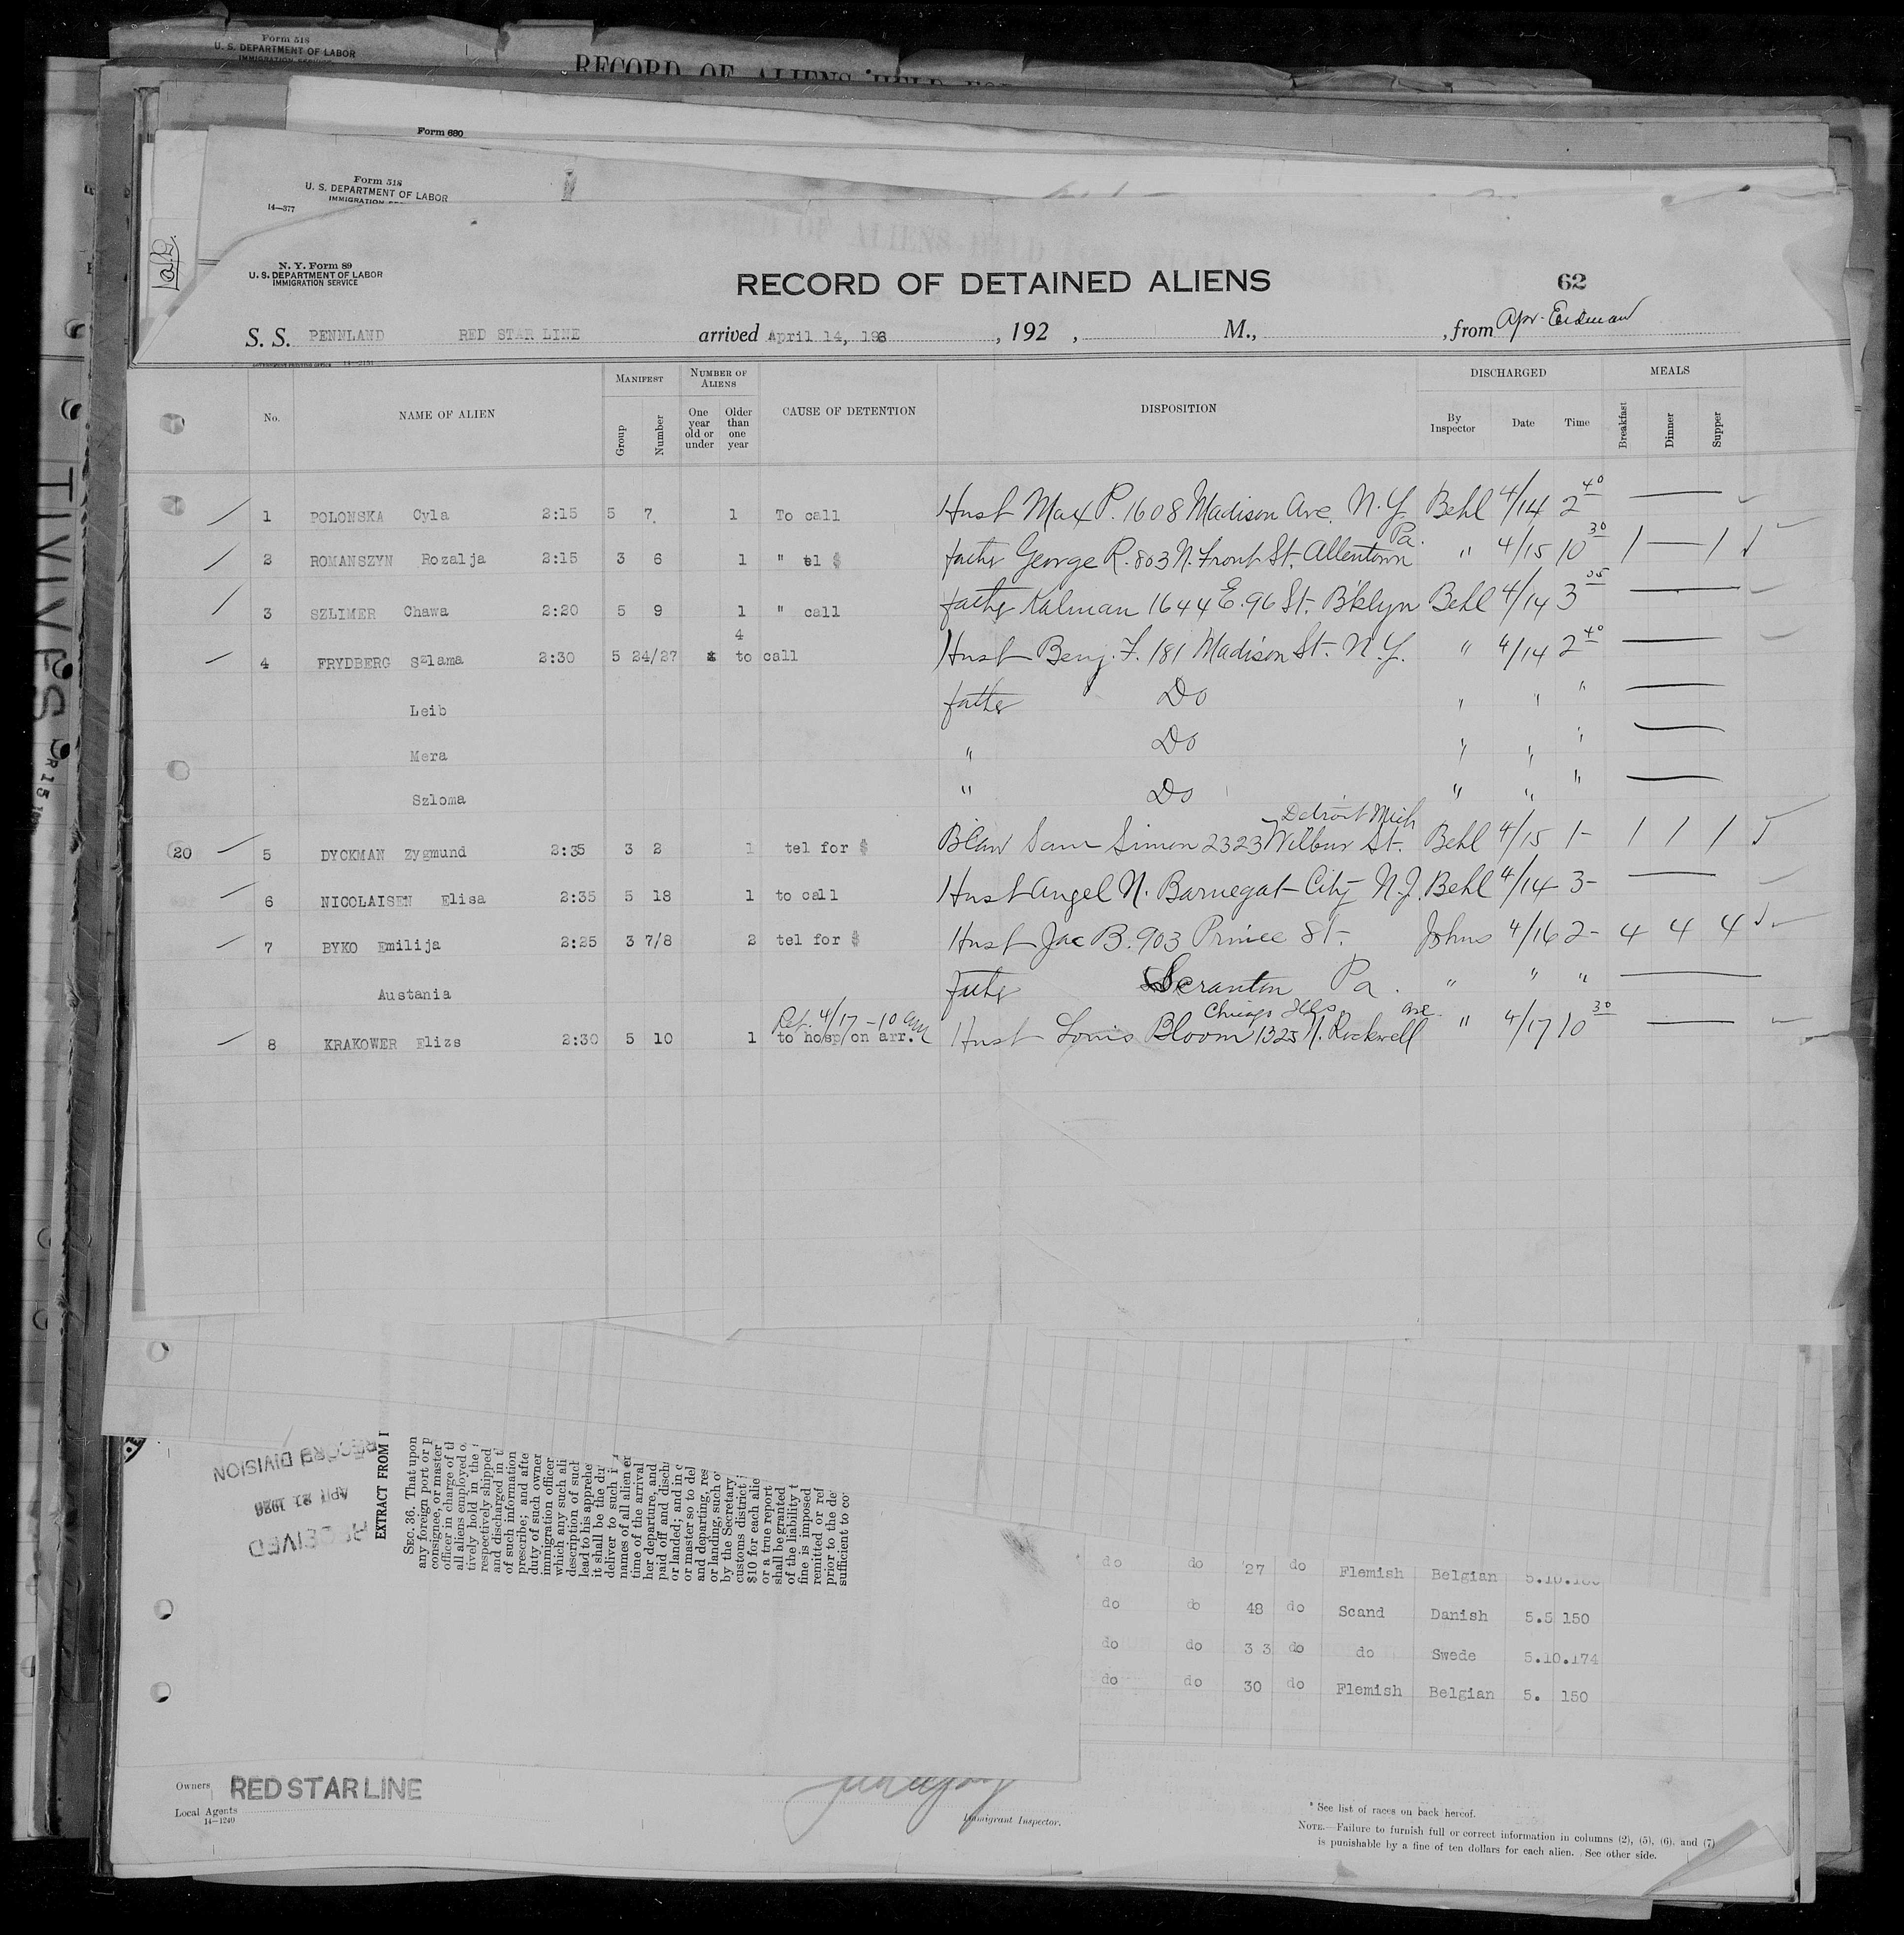 Form 518
U. S. DEPARTMENT OF LABOR
IMMIGRATION SERVICE
RECORD OF ALIENS HELD FOR
Form 680
Form 518
U. S. DEPARTMENT OF LABOR
14—377
N. Y. Form 89
U. S. DEPARTMENT OF LABOR
IMMIGRATION SERVICE
RECORD OF DETAINED ALIENS
62
S. S. PENNLAND RED STAR LINE arrived April 14, 1926, 192 , M., , from
No. NAME OF ALIEN MANIFEST Group Number NUMBER OF ALIENS One year old or under Older than one year CAUSE OF DETENTION DISPOSITION DISCHARGED By Inspector Date Time MEALS Breakfast Dinner Supper
1 POLONSKA Cyla 2:15 5 7 1 To call Husb Max P. 1608 Madison Ave. N.Y. Behl 4/14 2 40
2 ROMANSZYN Rozalja 2:15 3 6 1 " tel $ father George R. 803 N. Front St. Allentown Pa. " 4/15 10 30 1 — 1
3 SZLIMER Chawa 2:20 5 9 1 " call father Kalman 1644 E. 96 St. B'klyn Behl 4/14 3 05
4 FRYDBERG Szlama 2:30 5 24/27 4 to call Husb Benj. F. 181 Madison St. N.Y. " 4/14 2 40
Leib father Do " " "
Mera " Do " " "
Szloma " Do " " "
20 5 DYCKMAN Zygmund 2:35 3 2 1 tel for $ B'law Sam Simon 2323 Wilbur St. Detroit Mich Behl 4/15 1- 1 1 1
6 NICOLAISEN Elisa 2:35 5 18 1 to call Husb Angel N. Barnegat City N.J. Behl 4/14 3-
7 BYKO Emilija 2:25 3 7/8 2 tel for $ Husb Jac B. 903 Prince St. Johns 4/16 2- 4 4 4
Austania father Scranton Pa. " " "
8 KRAKOWER Elizs 2:30 5 10 1 Ret. 4/17 - 10 am to hosp/on arr. Husb Louis Bloom 1325 N. Rockwell Ave. Chicago Ills " 4/17 10 30
RECORD DIVISION
APR 21 1926
RECEIVED
EXTRACT FROM
SEC. 36. That upon
any foreign port or
consignee, or master
officer in charge of
all aliens employed
tively hold in the
respectively shipped
and discharged in
of such information
prescribe; and afte
duty of such owner
immigration officer
which any such ali
description of such
lead to his apprehe
it shall be the du
deliver to such i
names of all alien e
time of the arrival
her departure, and
paid off and disch
or landed; and in c
or master so to del
and departing, res
or landing, such o
by the Secretary
customs district
$10 for each alie
or a true report
shall be granted
of the liability t
fine is imposed
remitted or ref
prior to the de
sufficient to co
do do 27 do Flemish Belgian 5.10.
do do 48 do Scand Danish 5.5 150
do do 33 do do Swede 5.10.174
do do 30 do Flemish Belgian 5. 150
Owners RED STAR LINE
Local Agents
14—1240
Immigrant Inspector.
* See list of races on back hereof.
NOTE.—Failure to furnish full or correct information in columns (2), (5), (6), and (7)
is punishable by a fine of ten dollars for each alien. See other side.